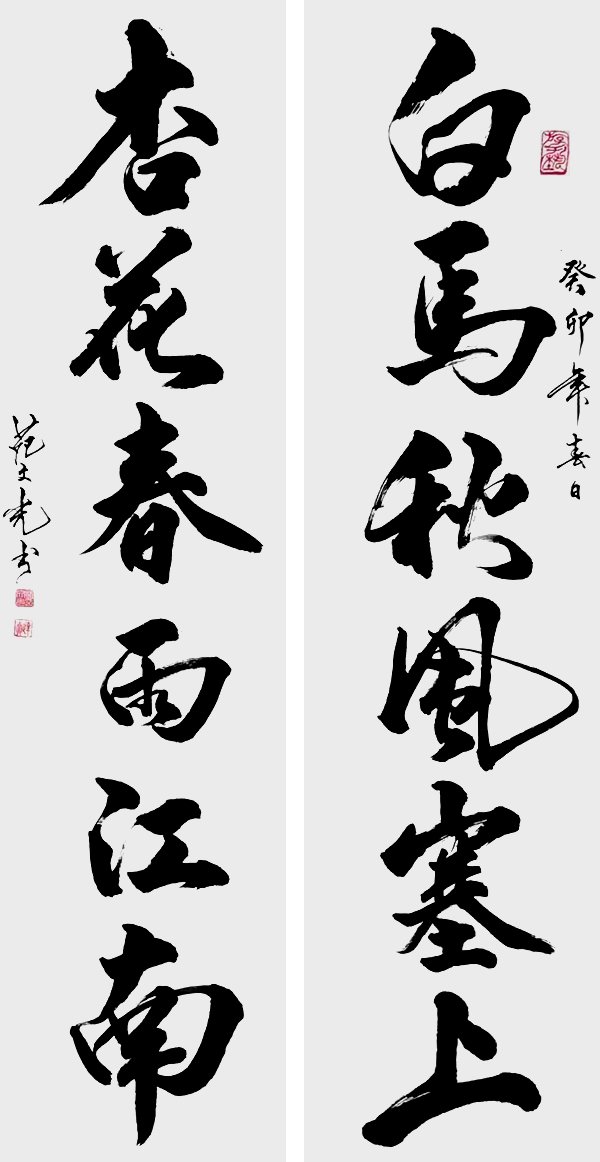 白馬秋風塞上
癸卯年春日
杏花春雨江南